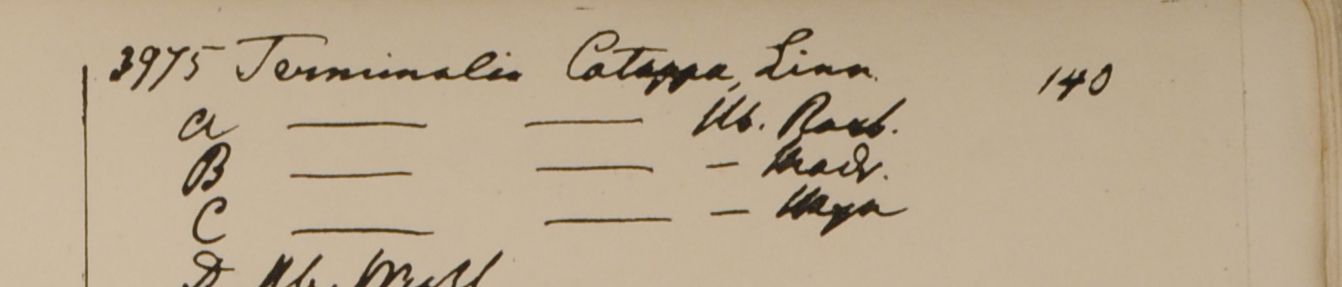 3975 Terminalia Catappa, Linn. 140
a —— —— Hb. Roxb.
B —— —— — Madr.
C —— —— — Heyn
D Hb. Wall